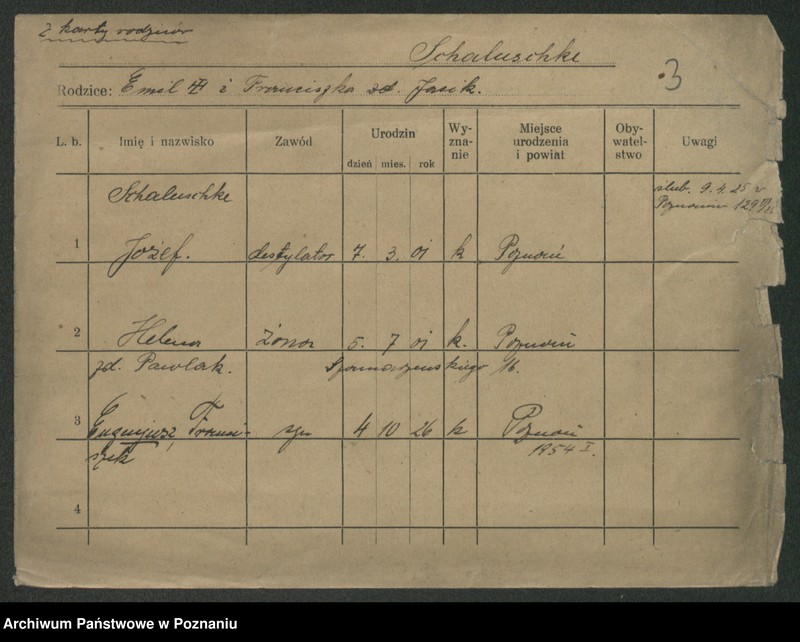 z karty rodziców
Schaluschke
3
Rodzice: Emil i Franciszka zd. Jasik.
L. b. Imię i nazwisko Zawód Urodzin dzień mies. rok Wy-zna-nie Miejsce urodzenia i powiat Oby-watel-stwo Uwagi
Schaluschke
ślub. 9. 4. 25 w
Poznaniu
1 Józef. destylator 7. 3. 01 k Poznań
2 Helena żona 5. 7 01 k. Poznań
zd. Pawlak.
3 Eugenjusz Franci- syn 4 10 26 k Poznań
szek 1954 I.
4
Archiwum Państwowe w Poznaniu